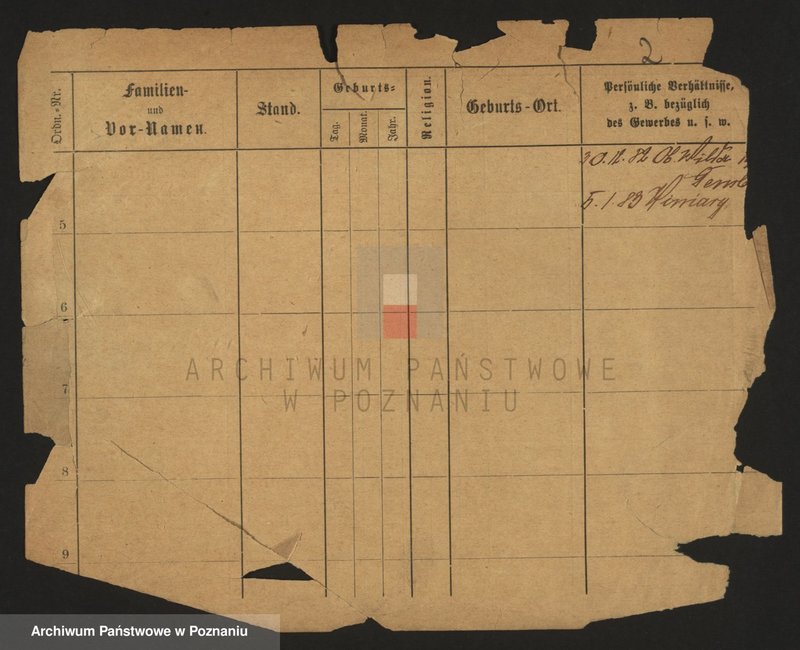 2
Ordn.-Nr.
Familien-
und
Vor-Namen.
Stand.
Geburts-
Tag.
Monat.
Jahr.
Religion.
Geburts-Ort.
Persönliche Verhältnisse,
z. B. bezüglich
des Gewerbes u. s. w.
30.12.82 Ob. Wilda
5.1.83 Winiary
5
6
7
8
9
ARCHIWUM PAŃSTWOWE
W POZNANIU
Archiwum Państwowe w Poznaniu